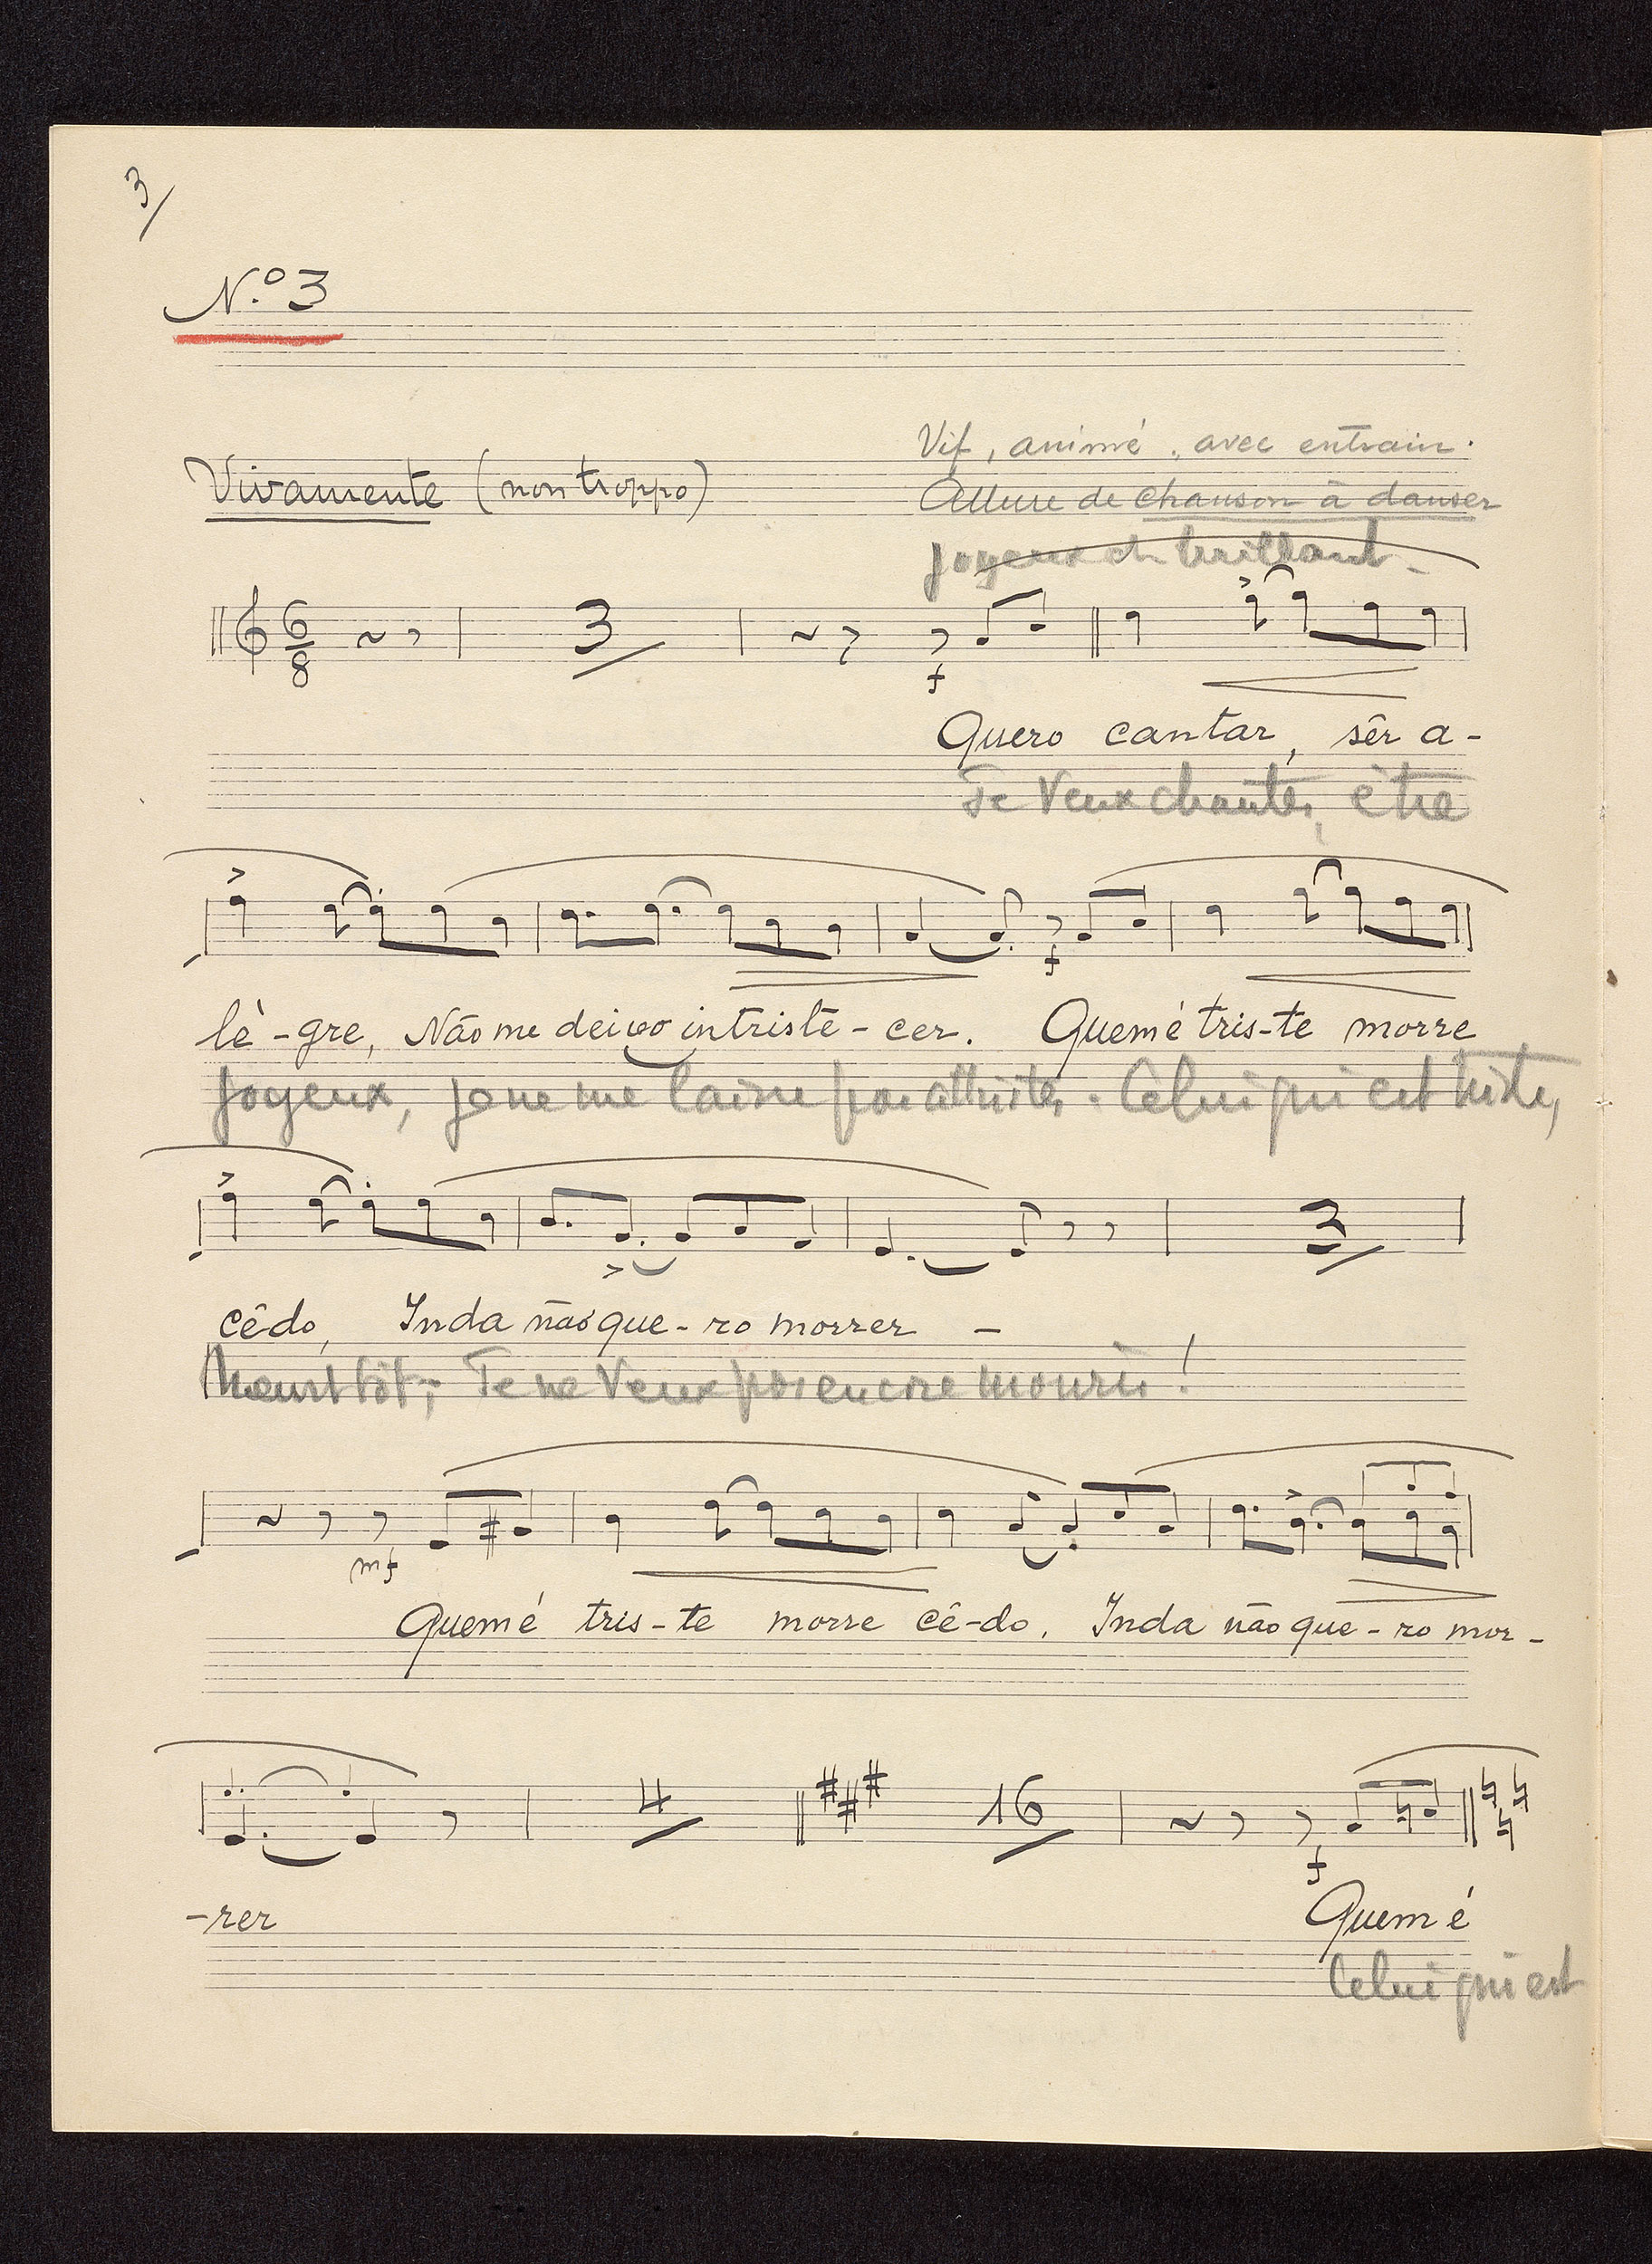 3/
N.º 3
Vif, animé, avec entrain.
Vivamente (non troppo)
Allure de chanson à danser
joyeux et brillant.
6/8
3
f
Quero cantar, sêr a-
Je veux chanter, être
f
lè-gre, Não me deixo intristê-cer. Quem é tris-te morre
joyeux, je ne me laisse pas attrister. Celui qui est triste,
3
cêdo, Inda não que-ro morrer -
meurt tôt; Je ne veux pas encore mourir!
mf
Quem é tris-te morre cê-do. Inda não que-ro mor-
4
16
f
-rer Quem é
Celui qui est